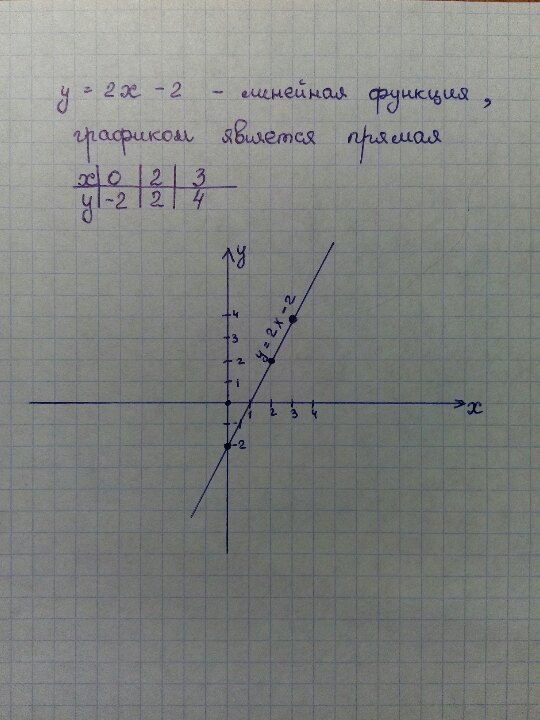 y = 2x - 2 - линейная функция,
графиком является прямая
x 0 2 3
y -2 2 4
y
4
3
2
1
y = 2x - 2
1 2 3 4
x
-1
-2